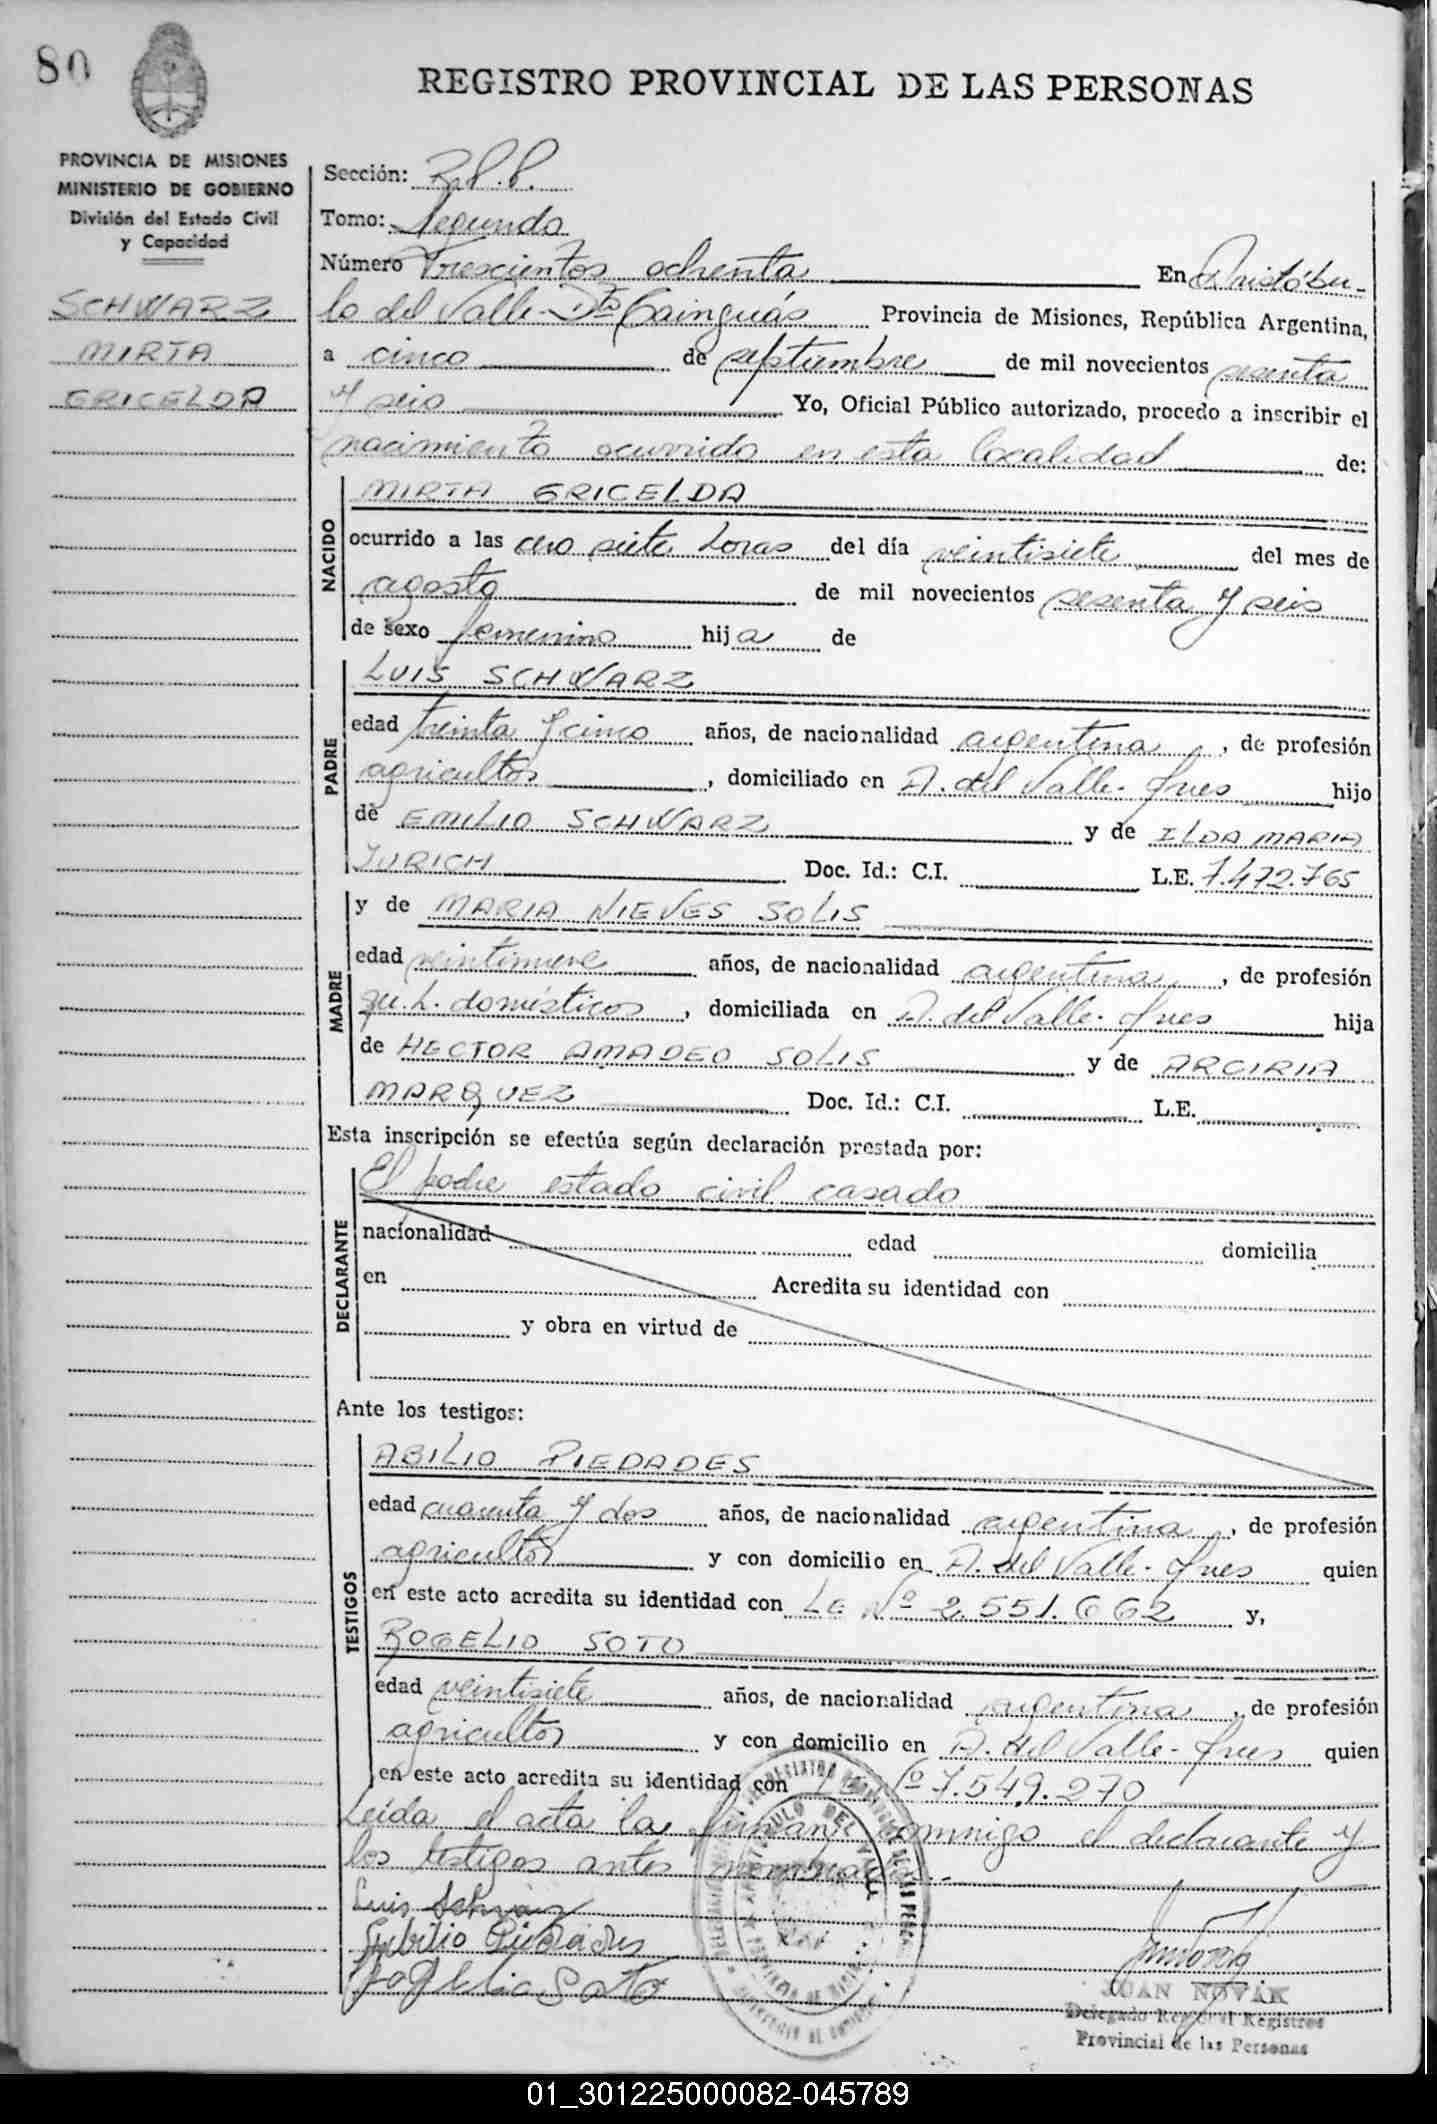 80
REGISTRO PROVINCIAL DE LAS PERSONAS
PROVINCIA DE MISIONES
MINISTERIO DE GOBIERNO
División del Estado Civil
y Capacidad
SCHWARZ
MIRTA
GRICELDA
Sección: R.P.P.
Tomo: Segundo
Número Trescientos ochenta En Aristóbu-
lo del Valle - Dto Cainguás Provincia de Misiones, República Argentina,
a cinco de septiembre de mil novecientos sesenta
y seis Yo, Oficial Público autorizado, procedo a inscribir el
nacimiento ocurrido en esta localidad de:
NACIDO
MIRTA GRICELDA
ocurrido a las cero siete horas del día veintisiete del mes de
agosto de mil novecientos sesenta y seis
de sexo femenino hija de
PADRE
LUIS SCHWARZ
edad treinta y cinco años, de nacionalidad argentina, de profesión
agricultor, domiciliado en A. del Valle - Mnes hijo
de EMILIO SCHWARZ y de ILDA MARIA
JURICH Doc. Id.: C.I. L.E. 7.472.765
MADRE
y de MARIA NIEVES SOLIS
edad veintinueve años, de nacionalidad argentina, de profesión
qu. h. domésticos, domiciliada en A. del Valle - Mnes hija
de HECTOR AMADEO SOLIS y de ARCIRIA
MARQUEZ Doc. Id.: C.I. L.E.
Esta inscripción se efectúa según declaración prestada por:
DECLARANTE
El padre estado civil casado
nacionalidad edad domicilia
en Acredita su identidad con
y obra en virtud de
Ante los testigos:
TESTIGOS
ABILIO PIEDADES
edad cuarenta y dos años, de nacionalidad argentina, de profesión
agricultor y con domicilio en A. del Valle - Mnes quien
en este acto acredita su identidad con LE Nº 2.551.662 y,
ROGELIO SOTO
edad veintisiete años, de nacionalidad argentina, de profesión
agricultor y con domicilio en A. del Valle - Mnes quien
en este acto acredita su identidad con LE Nº 7.549.270
Leída el acta la firman conmigo el declarante y
los testigos antes nombrados.
Luis Schwarz
Abilio Piedades
Rogelio Soto
JUAN NOVAK
Delegado Regional Registros
Provincial de las Personas
01_301225000082-045789